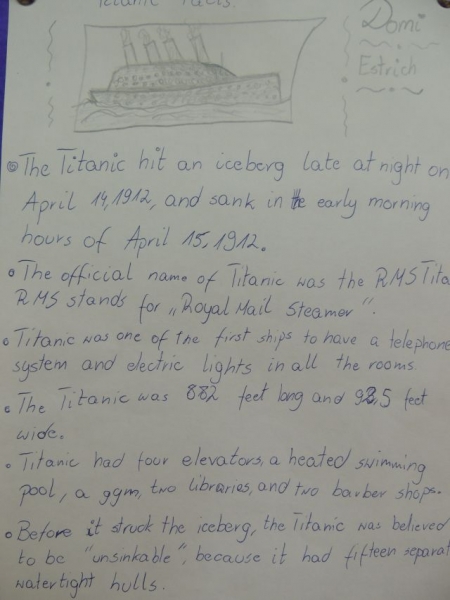 Titanic Facts.
Domi
Estrich
The Titanic hit an iceberg late at night on
April 14, 1912, and sank in the early morning
hours of April 15, 1912.
The official name of Titanic was the RMS Tita
RMS stands for „Royal Mail Steamer".
Titanic was one of the first ships to have a telephone
system and electric lights in all the rooms.
The Titanic was 882 feet long and 92,5 feet
wide.
Titanic had four elevators, a heated swimming
pool, a gym, two libraries, and two barber shops.
Before it struck the iceberg, the Titanic was believed
to be "unsinkable", because it had fifteen separat
watertight hulls.